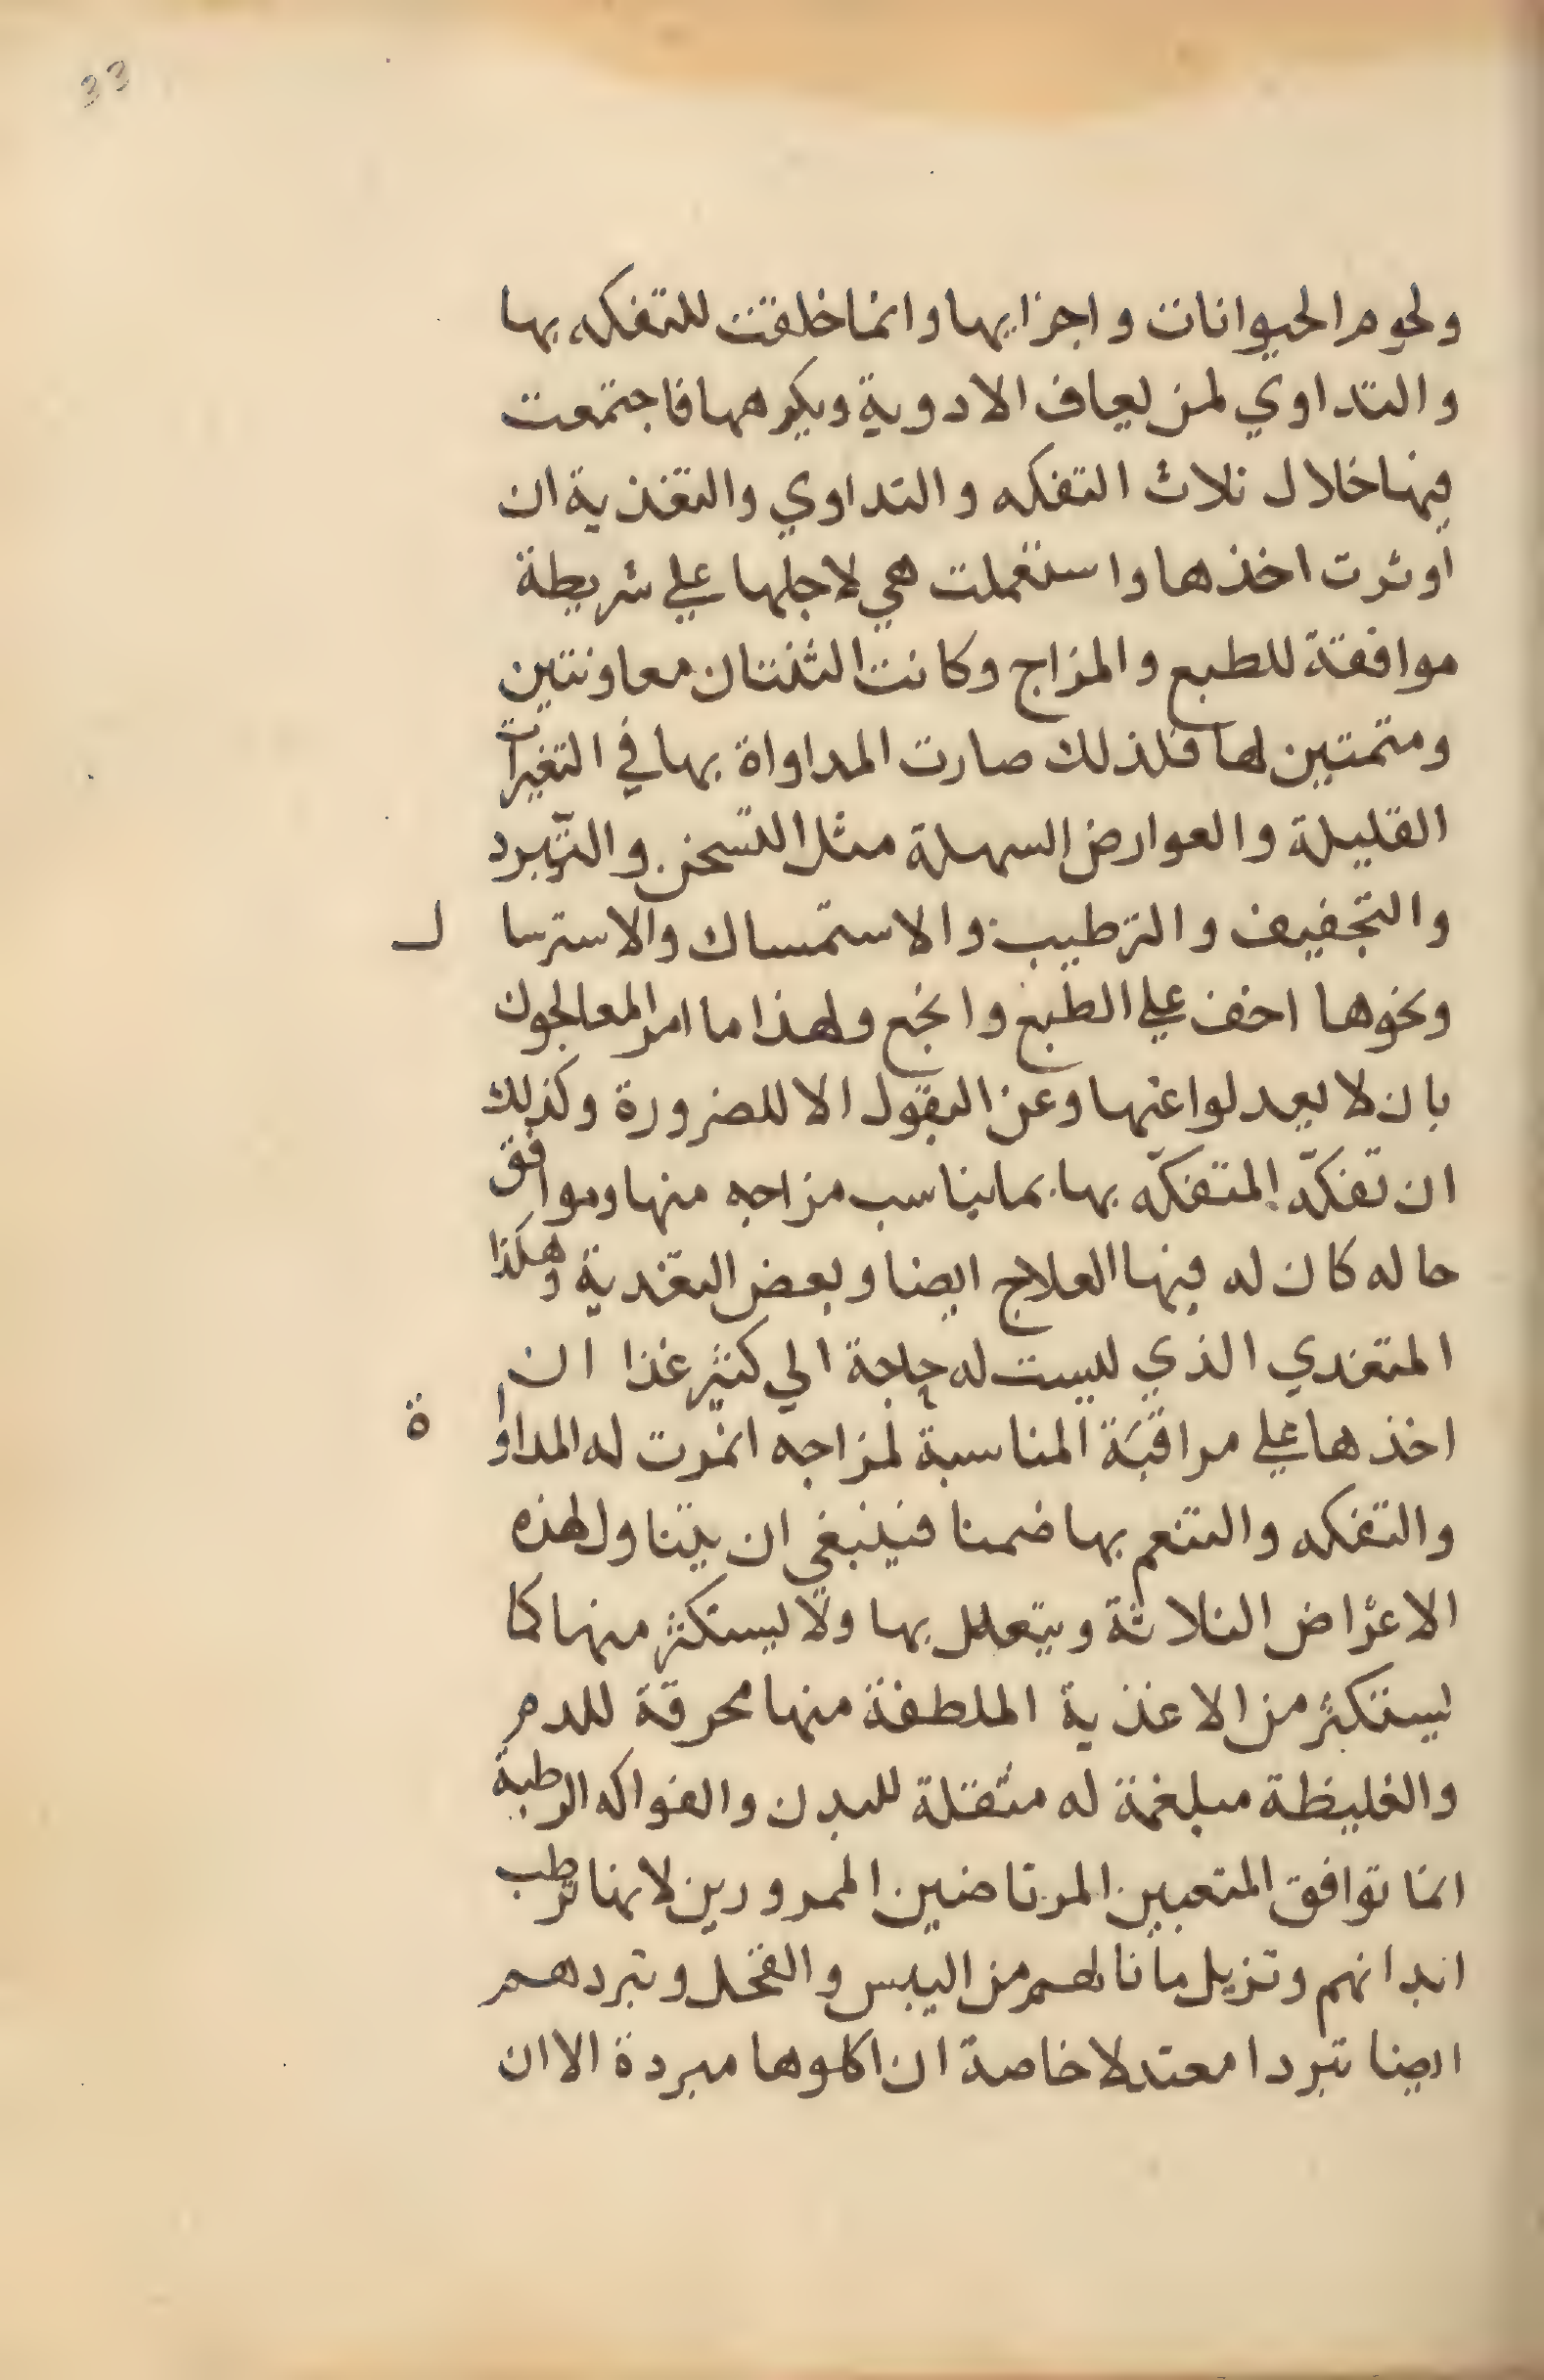 33
ولحوم الحيوانات واجزايها وانما خلقت للتفكه بها
والتداوي لمن يعاف الادوية ويكرهها فاجتمعت
فيها خلال ثلاث التفكه والتداوي والتغذية ان
اوثرت اخذها واستعملت هي لاجلها علي شريطة
موافقة للطبع والمزاج وكانت الثنتان معاونتين
ومتمتين لها فلذلك صارت المداواة بها في التغيرات
القليلة والعوارض السهلة مثل التسخن والتبرد
والتجفيف والترطيب والاستمساك والاسترسال
ونحوها اخف علي الطبع وانجع ولهذا ما امر المعالجون
بان لا يعدلوا عنها وعن البقول الا للضرورة وكذلك
ان تفكّه المتفكّه بها بما يناسب مزاجه منها وموافق
حاله كان له فيها العلاج ايضا وبعض التغدية وهكذا
المتغدي الذي ليست له حاجة الي كثير غذا ان
اخذها علي مراقبَة المناسبة لمزاجه اثمرت له المداواة
والتفكه والتنعم بها ضمنا فينبغي ان يتناول لهذه
الاغراض الثلاثة ويتعلل بها ولا يستكثر منها كما
يستكثر من الاغذية الملطفة منها محرقة للدم
والغليظة مبلغمة له مثقلة للبدن والفواكه الرطبة
انما توافق المتعبين المرتاضين الممرورين لانها ترطب
ابدانهم وتزيل ما نالهم من اليبس والقحل وتبردهم
ايضا تبردا معتدلا خاصة ان اكلوها مبردة الا ان